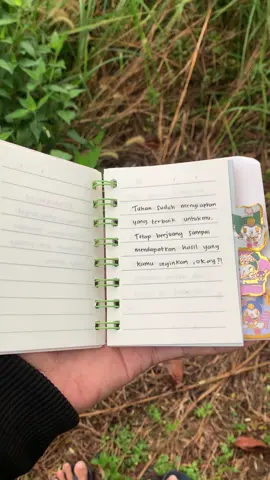 Tuhan sudah menyiapkan
yang terbaik untukmu.
Tetap berjuang sampai
mendapatkan hasil yang
kamu inginkan, okay?!